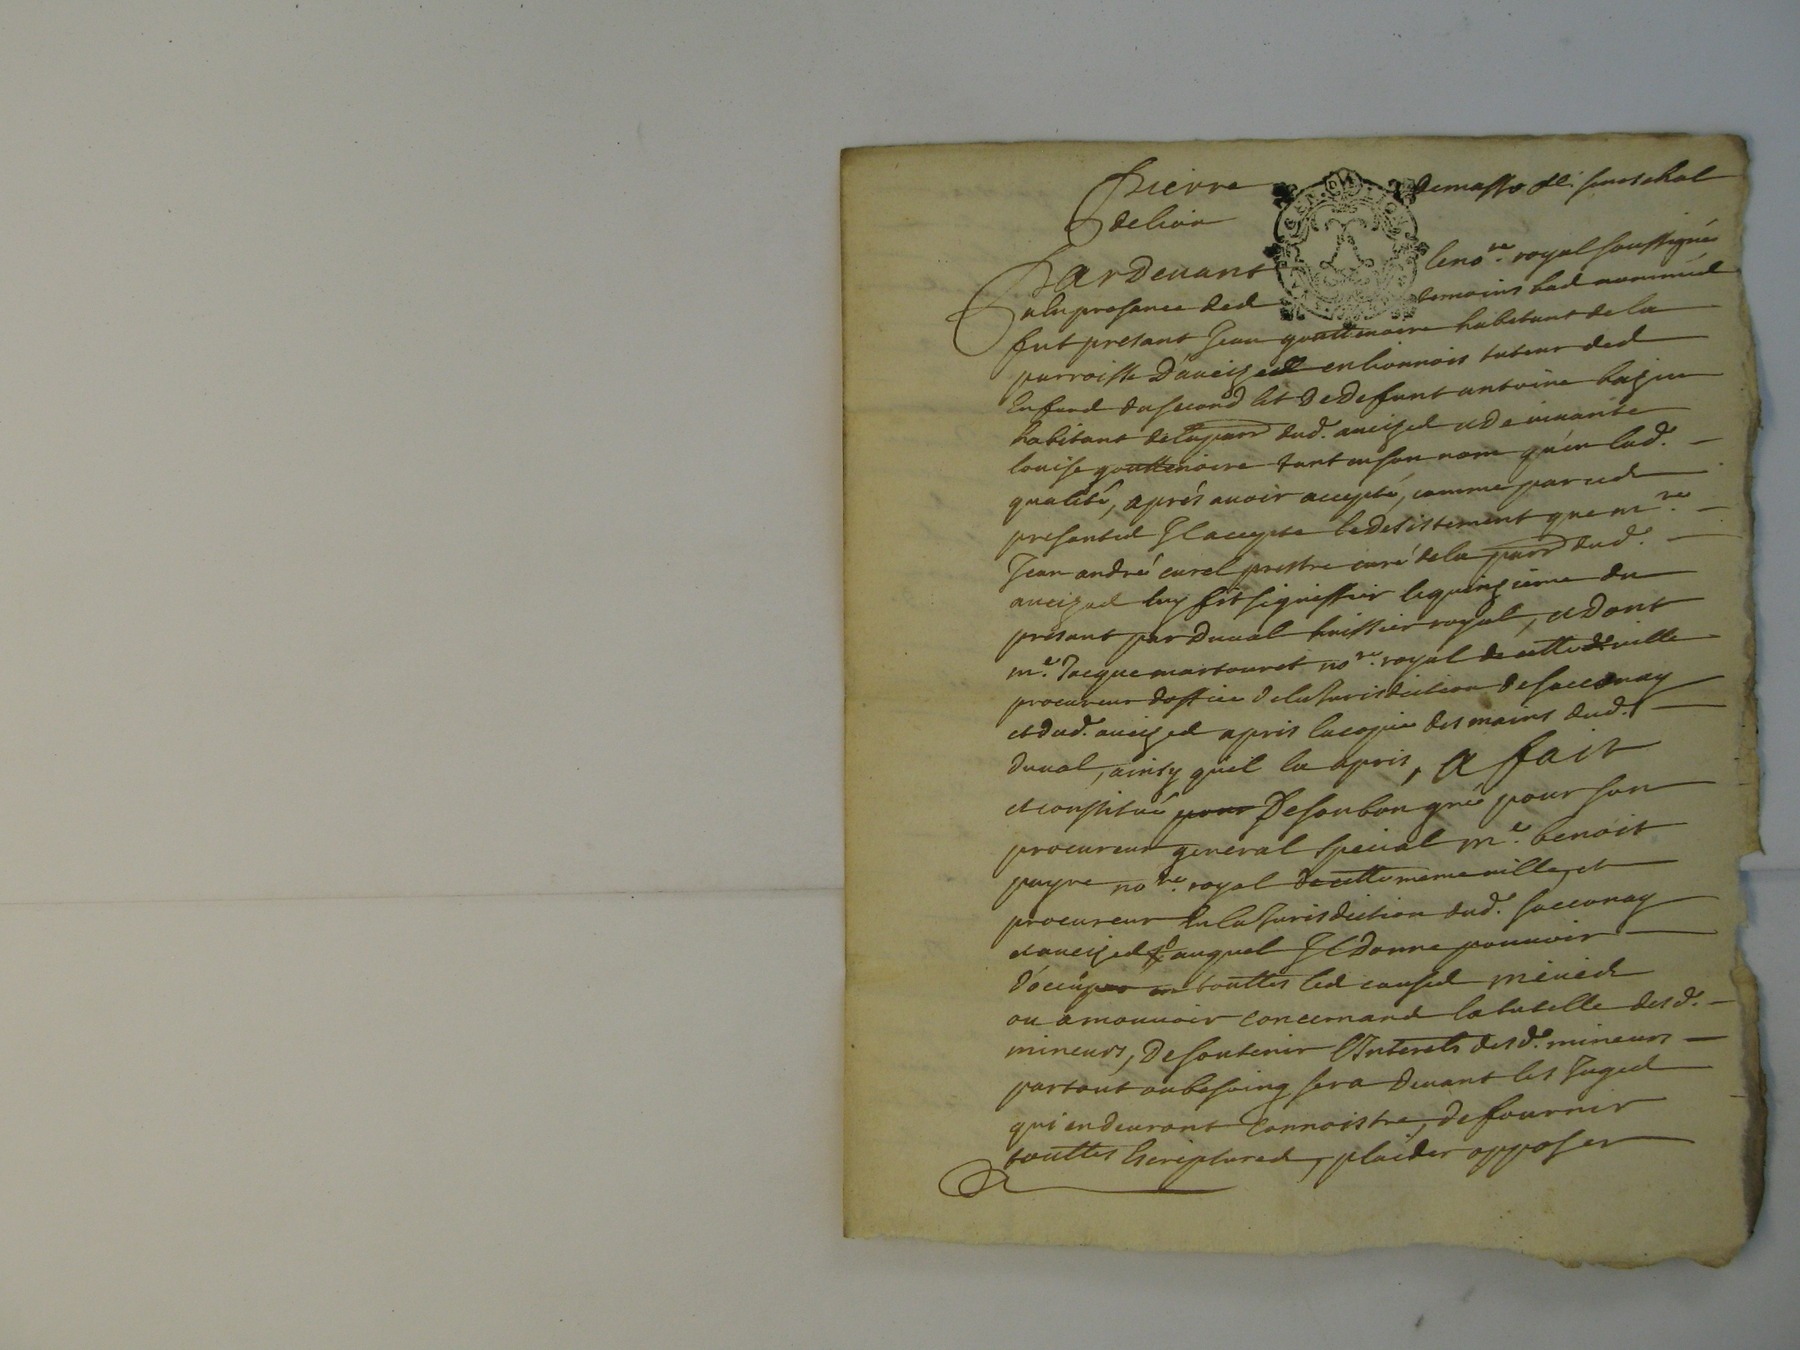 Pierre demasso &c. seneschal
de lion
Pardevant le no.re royal soussigné
& en presance des temoins bas nommés
fut presant Jean gouttenoire habitant de la
parroisse d'aveizes en lionnois tuteur des
enfans du second lit de defunt antoine bazin
habitant de la parr dud. aveizes & de vivante
louise gouttenoire tant en son nom qu'en lad.
qualité, aprés avoir accepté, comme par ces
presantes Il accepte le desistement que m.re
Jean andré curel prestre curé de la parr dud.
aveizes luy fit signiffier le quinzieme du
presant par Duval huissier royal, & dont
m.e Jacque martouret no.re royal de cette d. ville
procureur d'office de la Jurisdiction de sacconay
et dud. aveizes a pris la copie des mains dud.
Duval, ainsy qu'il l'a apris, a fait
et constitué pour De son bon gré pour son
procureur general special m.e benoit
payre no.re royal de cette meme ville, et
procureur en la Jurisdiction dud. sacconay
et aveizes auquel Il donne pouvoir
d'occuper en touttes les causes meües
ou a mouvoir concernand la tutelle desd.
mineurs, de soutenir l'Interets desd. mineurs
partout ou besoing sera devant les Juges
qui en devront connoistre, de fournir
touttes escriptures, plaider opposer